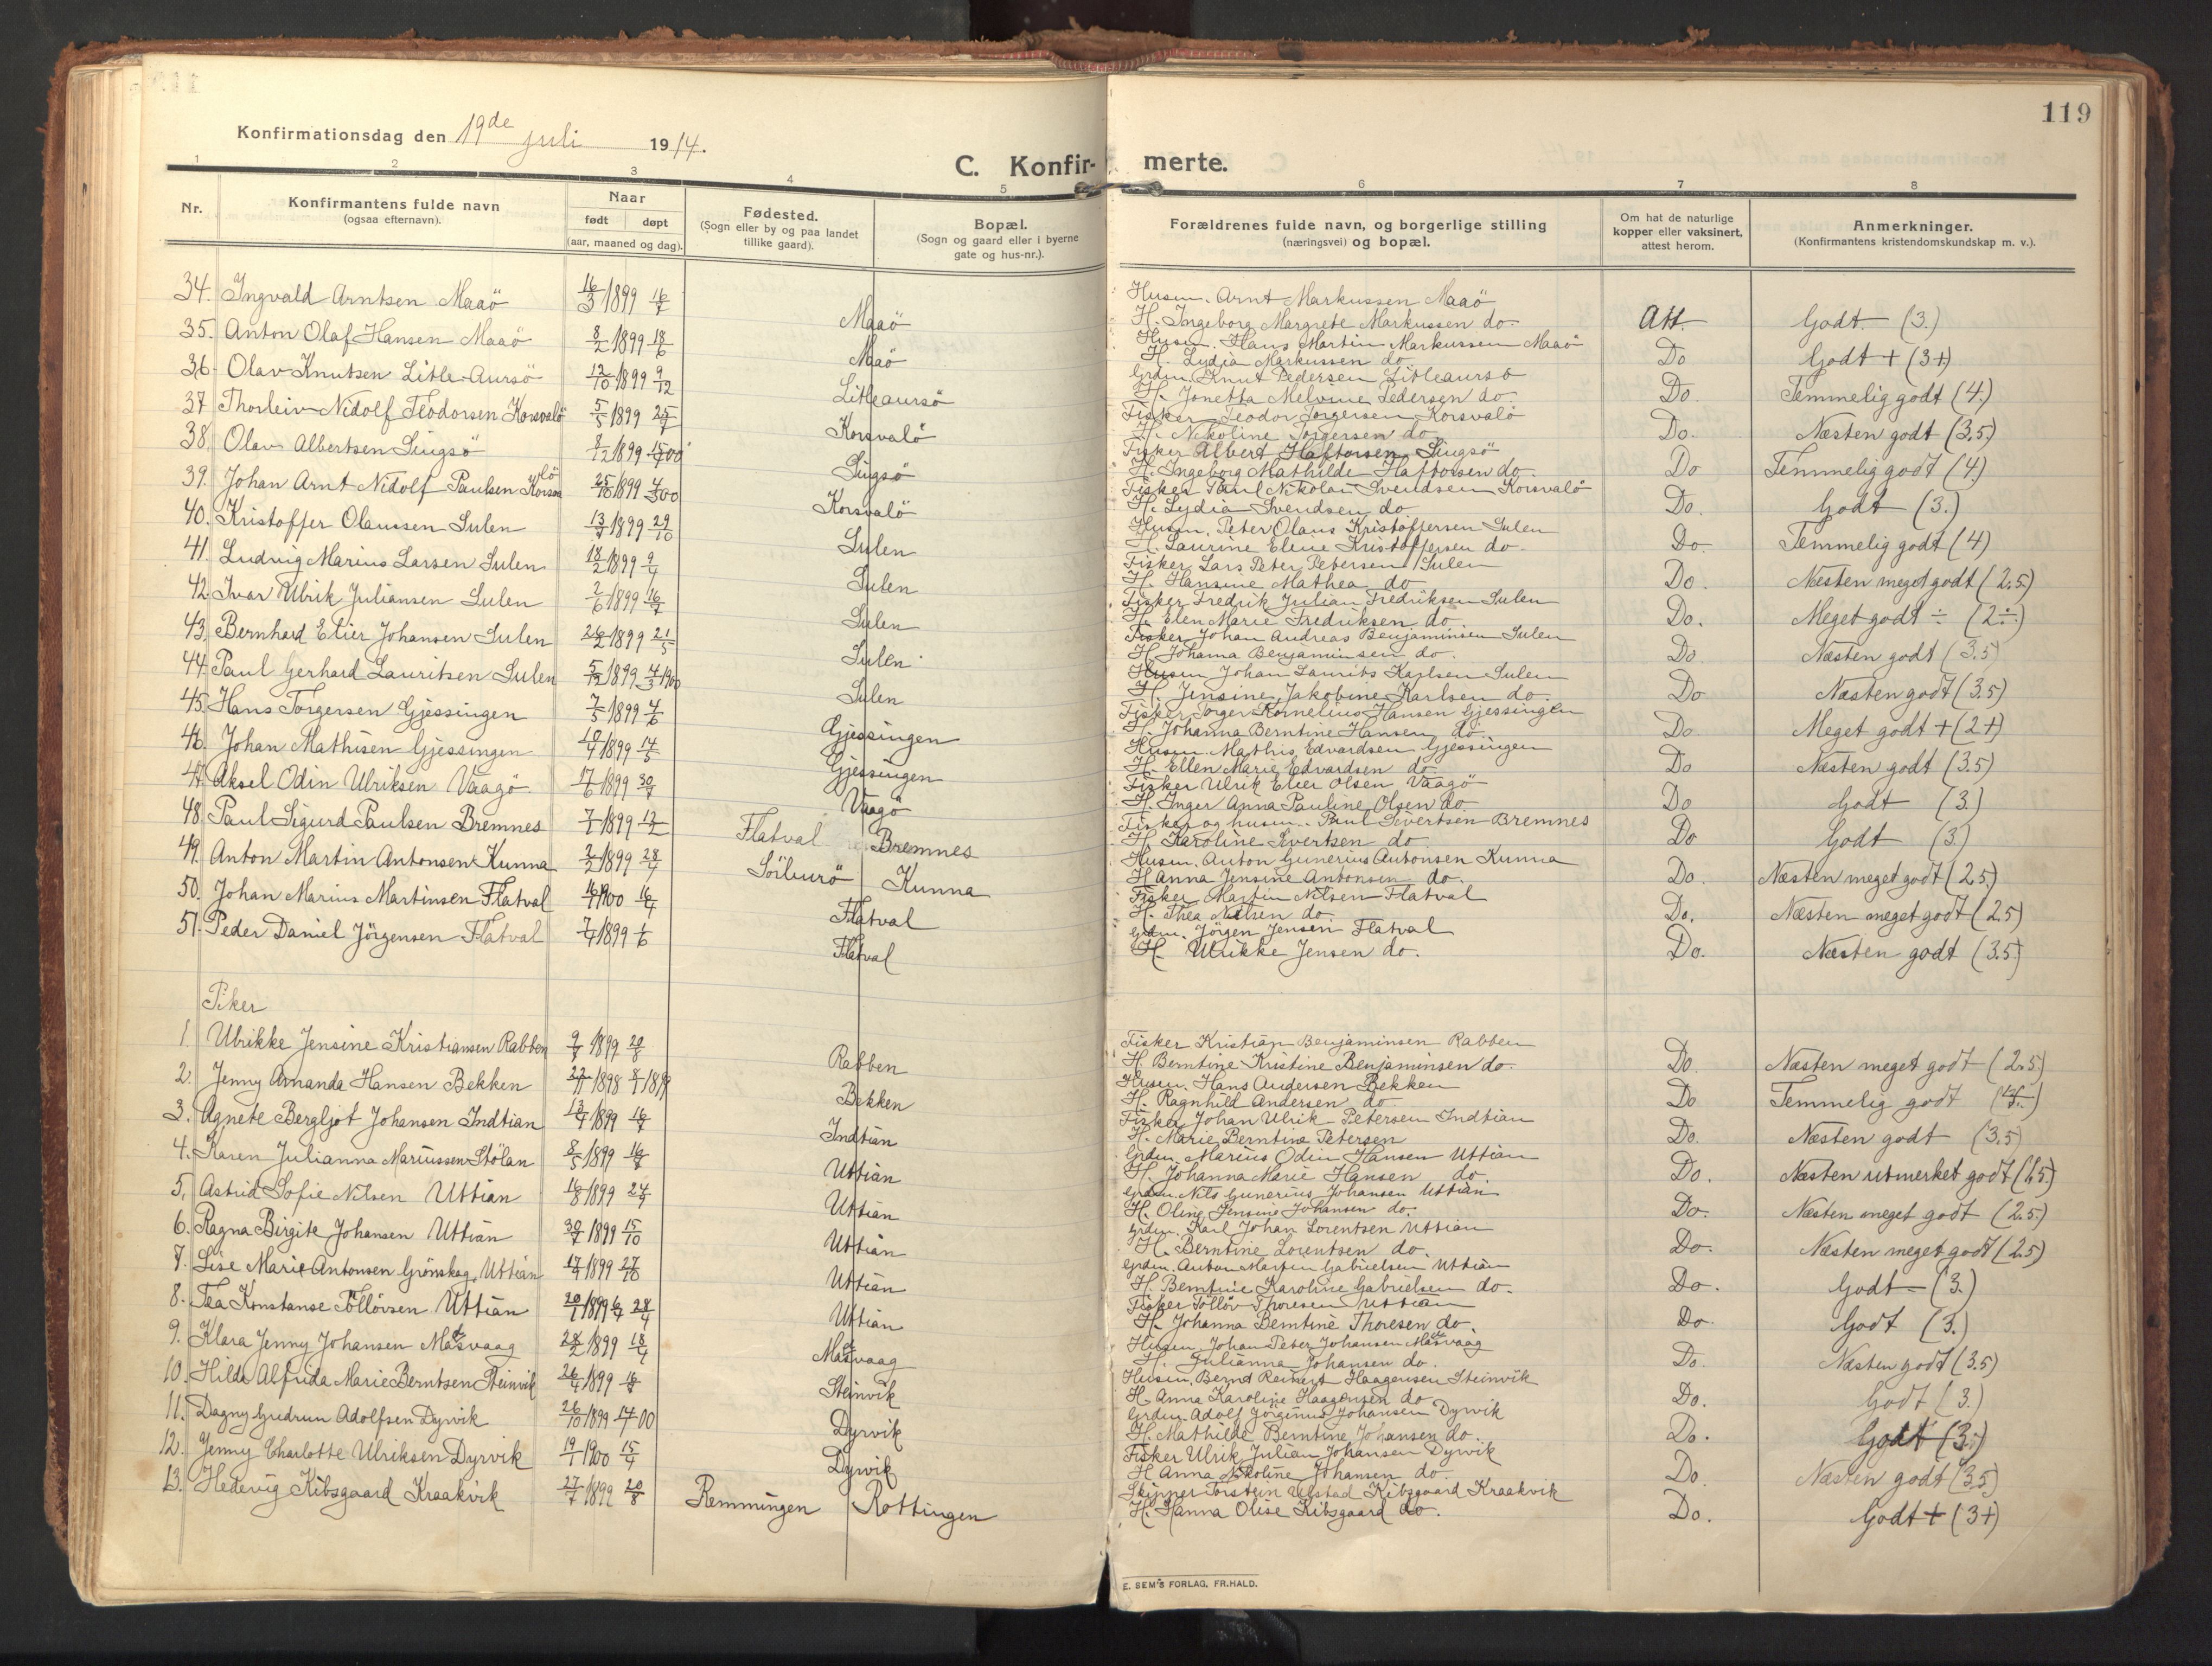 119
Konfirmationsdag den 19de juli 1914.
C. Konfir- merte.
1 2 3 4 5 6 7 8
Nr.
Konfirmantens fulde navn
(ogsaa efternavn).
Naar
født døpt
(aar, maaned og dag).
Fødested.
(Sogn eller by og paa landet
tillike gaard).
Bopæl.
(Sogn og gaard eller i byerne
gate og hus-nr.).
Forældrenes fulde navn, og borgerlige stilling
(næringsvei) og bopæl.
Om hat de naturlige
kopper eller vaksinert,
attest herom.
Anmerkninger.
(Konfirmantens kristendomskundskap m. v.).
34. Ingvald Arntsen Maaö 16/3 1899 16/7 Maaö Husm. Arnt Markussen Maaö
H. Ingeborg Margrete Markussen do. Att. Godt (3.)
35. Anton Olaf Hansen Maaö 8/2 1899 18/6 Maö Husm. Hans Martin Markussen Maaö
H. Lydia Markussen do. Do Godt + (3+)
36. Olav Knutsen Litle-Aursö 12/10 1899 9/12 Litleaursö Grdm. Knut Pedersen Litleaursö
H. Jonetta Melvine Pedersen do. Do. Temmelig godt (4.)
37 Thorleiv Nidolf Teodorsen Korsvalö 5/5 1899 25/7 Korsvalö Fisker Teodor Torgersen Korsvalö
H. Nikoline Torgersen do. Do. Næsten godt (3.5)
38. Olav Albertsen Singsö 8/12 1899 15/7 00 Singsö Fisker Albert Haftorsen Singsö
H. Ingeborg Mathilde Haftorsen do. Do Temmelig godt (4.)
39. Johan Arnt Nidolf Paulsen Korsvalö 25/10 1899 4/3 00 Korsvalö Fisker Paul Nikolai Svendsen Korsvalö
H. Lydia Svendsen do. Do. Godt (3.)
40. Kristoffer Olaussen Sulen 13/7 1899 29/10 Sulen Husm. Peter Olaus Kristoffersen Sulen
H. Laurine Eline Kristoffersen do. Do. Temmelig godt (4)
41. Ludvig Marius Larsen Sulen 18/2 1899 9/4 Sulen Fisker Lars Peter Petersen Sulen
H. Hansine Mathea do. Do. Næsten meget godt (2.5)
42. Ivar Ulrik Juliansen Sulen 2/6 1899 16/7 Sulen Fisker Fredrik Julian Fredriksen Sulen
H. Elen Marie Fredriksen do. Do. Meget godt ÷ (2÷)
43. Bernhard Elier Johansen Sulen 26/2 1899 21/5 Sulen Fisker Johan Andreas Benjaminsen Sulen
H. Johanna Benjaminsen do. Do Næsten godt (3.5)
44. Paul Gerhard Lauritsen Sulen 5/12 1899 4/3 1900 Sulen Husm Johan Laurits Karlsen Sulen
H. Jensine Jakobine Karlsen do. Do Næsten godt (3.5)
45. Hans Torgersen Gjessingen 7/5 1899 4/6 Gjessingen Fisker Torger Kornelius Hansen Gjessingen
H. Johanna Berntine Hansen do. Do Meget godt + (2+)
46. Johan Mathisen Gjessingen 10/4 1899 14/5 Gjessingen Husm. Mathis Edvardsen Gjessingen
H. Ellen Marie Edvardsen do. Do Næsten godt (3.5)
47. Aksel Odin Ulriksen Vaagö 17/6 1899 30/7 Vaagö Fisker Ulrik Elier Olsen Vaagö
H. Inger Anna Pauline Olsen do. Do Godt (3.)
48. Paul Sigurd Paulsen Bremnes 7/1 1899 12/2 Flatval Bremnes Fisker og husm. Paul Sivertsen Bremnes
H. Karoline Sivertsen do. Do Godt (3.)
49. Anton Martin Antonsen Kunna 2/2 1899 28/4 Sörburö Kunna Husm. Anton Gunerius Antonsen Kunna
H. Anna Jensine Antonsen do. Do. Næsten meget godt (2.5)
50. Johan Marius Martinsen Flatval 1900 Flatval Fisker Martin Nilsen Flatval
H. Thea Nilsen do. Do. Næsten meget godt (2.5)
51. Peder Daniel Jörgensen Flatval 7/4 1899 1/6 Flatval Grdm. Jörgen Jensen Flatval
H. Ulrikke Jensen do. Do. Næsten godt (3.5)
Piker
1. Ulrikke Jensine Kristiansen Rabben 9/7 1899 20/8 Rabben Fisker Kristian Benjaminsen Rabben
H. Berntine Kristine Benjaminsen do. Do. Næsten meget godt (2.5)
2. Jenny Amanda Hansen Bekken 22/11 1898 8/1 1899 Bekken Husm. Hans Andersen Bekken
H. Ragnhild Andersen do Do Temmelig godt (4.)
3. Agnete Bergljot Johansen Indtian 13/4 1899 16/7 Indtian Fisker Johan Ulrik Petersen Indtian
H. Marie Berntine Petersen Do. Næsten godt (3.5)
4. Karen Julianna Mariussen Stölan 8/5 1899 16/7 Uttian Grdm. Marius Odin Hansen Uttian
H. Johanna Marie Hansen do. Do. Næsten utmerket godt (1.5)
5. Astrid Sofie Nilsen Uttian 16/8 1899 24/9 Uttian Grdm. Nils Gunerius Johansen Uttian
H. Oline Jensine Johansen do. Do. Næsten meget godt (2.5)
6. Ragna Birgite Johansen Uttian 30/7 1899 15/10 Uttian Grdm. Karl Johan Lorentsen Uttian
H. Berntine Lorentsen do. Do. Næsten meget godt (2.5)
7. Lise Marie Antonsen Grönskag, Uttian 17/9 1899 27/10 Uttian Grdm. Anton Martin Gabrielsen Uttian
H. Berntine Karoline Gabrielsen do. Do. Godt (3.)
8. Tea Konstanse Töllövsen Uttian 20/1 1899 28/4 Uttian Fisker Töllöv Thoresen Uttian
H. Johanna Berntine Thoresen do. Do. Godt (3.)
9. Klara Jenny Johansen Masvaag 28/2 1899 18/4 Masvaag Husm. Johan Peter Johansen Masvaag
H. Julianna Johansen do. Do. Næsten godt (3.5)
10. Hilda Alfrida Marie Berntsen Steinvik 26/4 1899 Steinvik Husm. Bernt Reinert Haagensen Steinvik
H. Anna Karoline Haagensen do Do. Godt (3.)
11. Dagny Gudrun Adolfsen Dyrvik 26/10 1899 00 Dyrvik Grdm. Adolf Jörginus Johansen Dyrvik
H. Mathilde Berntine Johansen do. Do. Godt (3.)
12. Jenny Charlotte Ulriksen Dyrvik 19/1 1900 15/4 Dyrvik Fisker Ulrik Julian Johansen Dyrvik
H. Anna Nikoline Johansen do. Do Næsten godt (3.5)
13. Hedevig Kibsgaard Kraakvik 27/7 1899 20/8 Remmingen Rottingen Skipper Torstein Ulstad Kibsgaard Kraakvik
H. Hanna Olise Kibsgaard do. Do. Godt + (3+)
E. SEM'S FORLAG, FR.HALD.